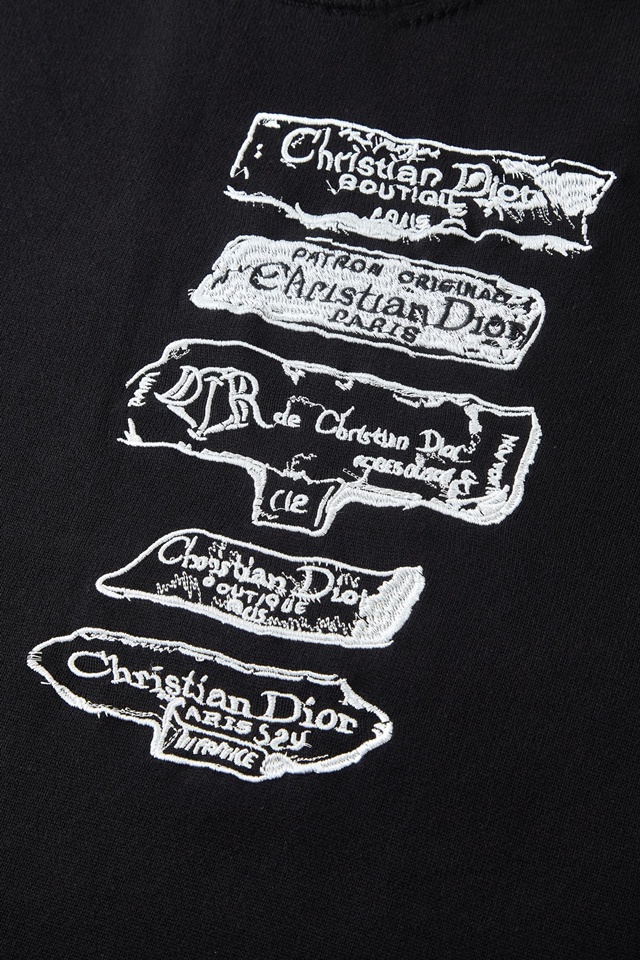 Christian Dior
BOUTIQUE
PATRON ORIGINAL
Christian Dior
PARIS
DIOR de Christian Dior
Christian Dior
BOUTIQUE
Christian Dior
ARIS S24
FRANCE